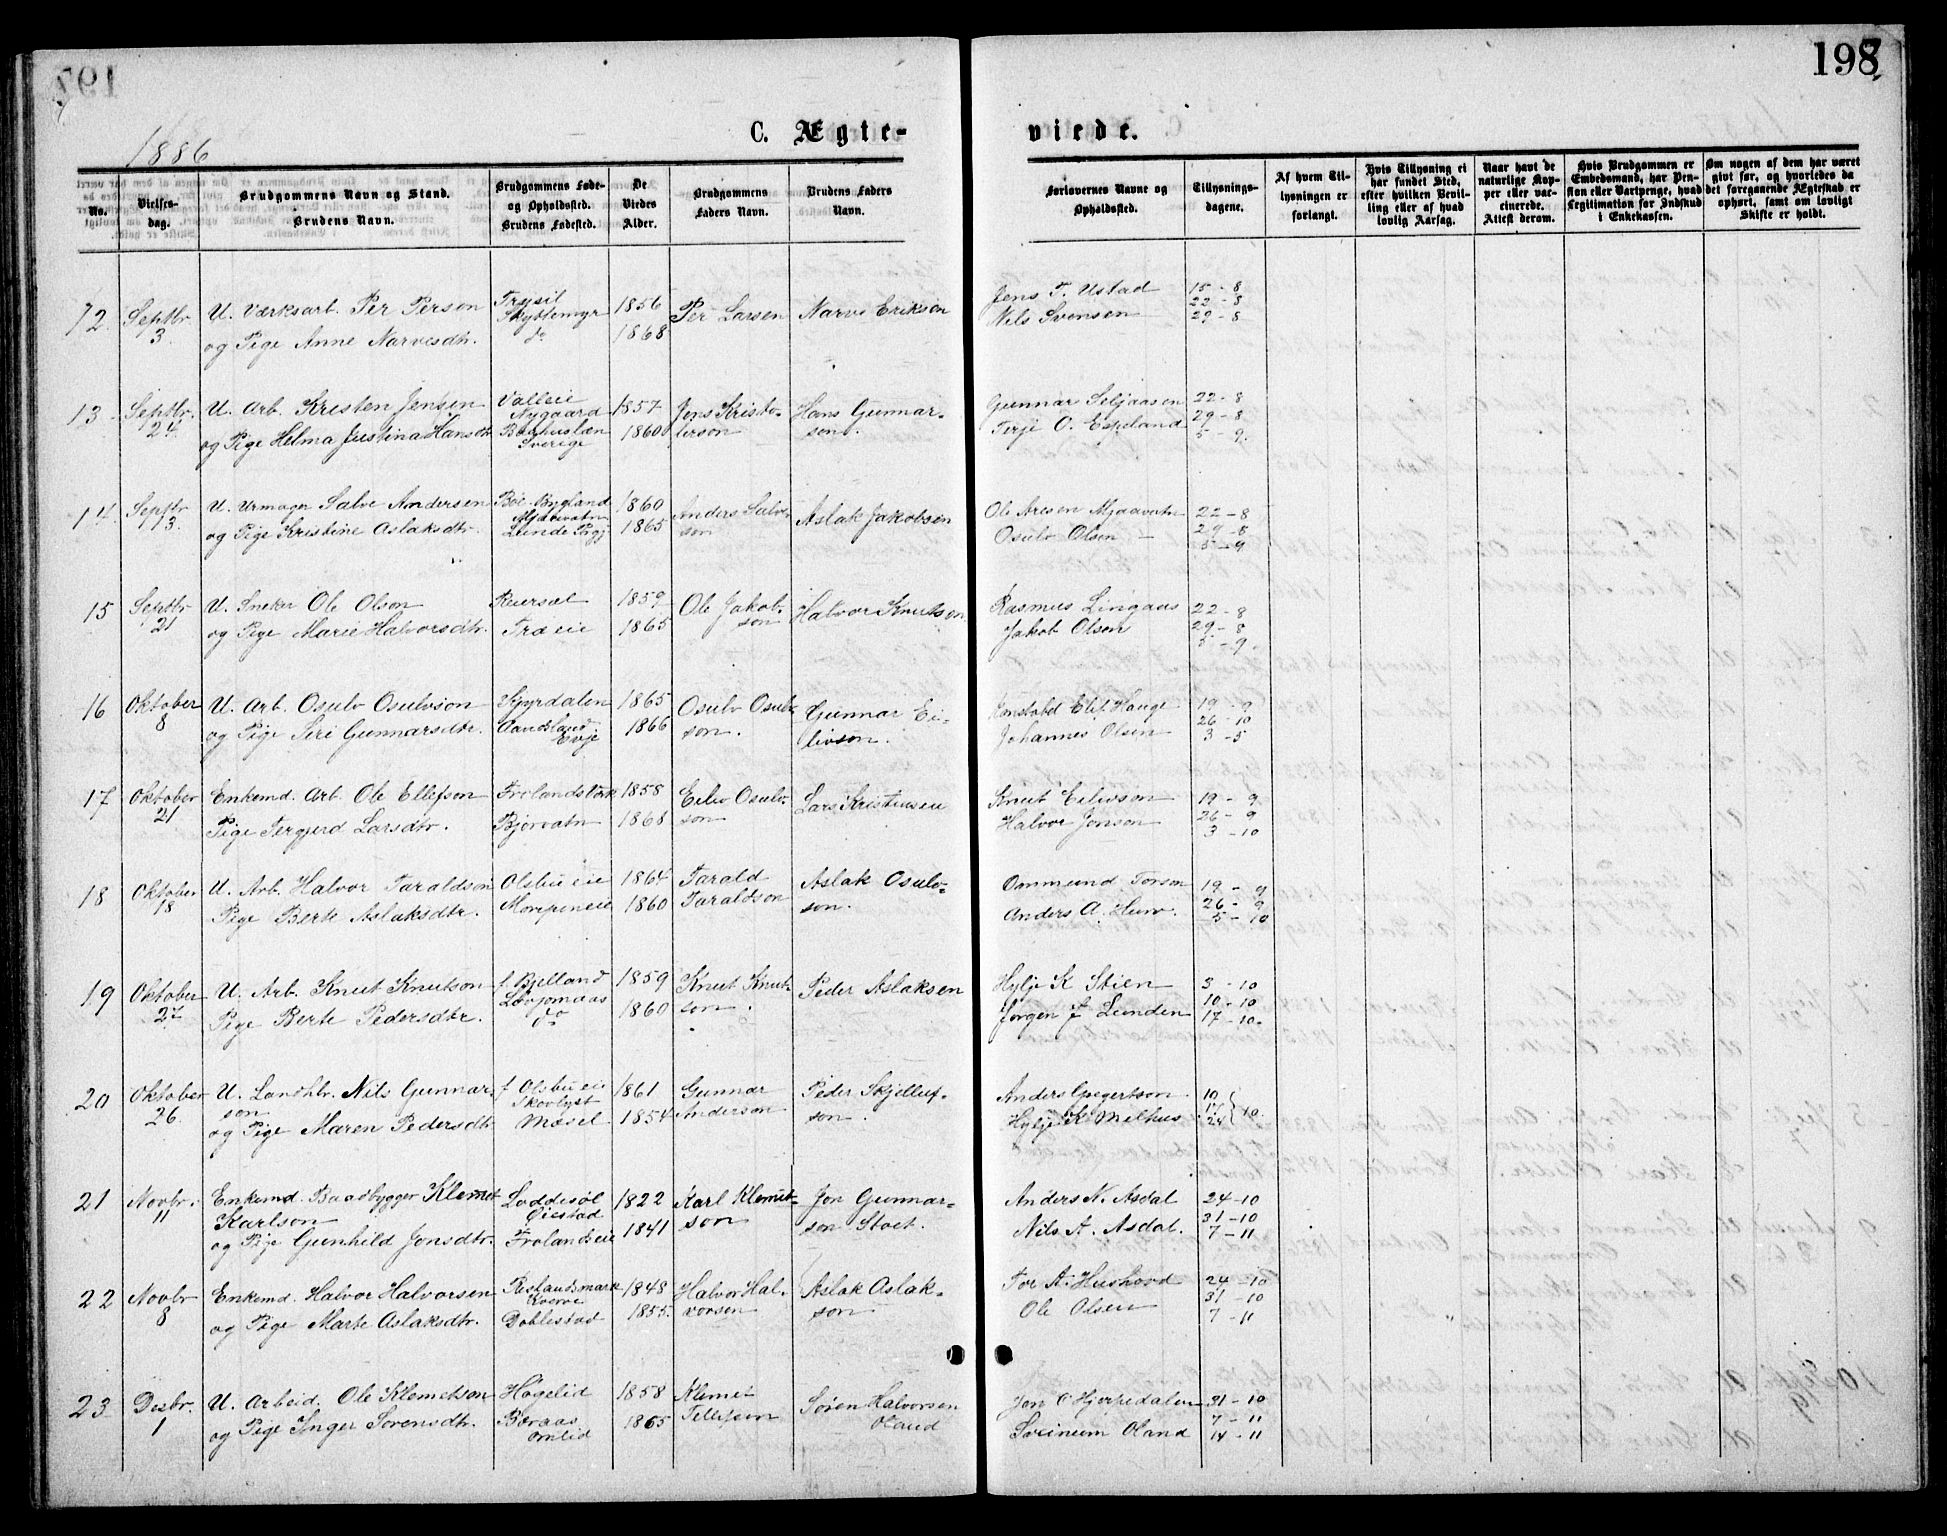 198
1886
C. Ægte-
viede.
No.
Vielses-
dag.
Brudgommens Navn og Stand.
Brudens Navn.
Brudgommens Føde-
og Opholdssted.
Brudens Fødested.
De
Viedes
Alder.
Brudgommens
Faders Navn.
Brudens Faders
Navn.
Forlovernes Navne og
Opholdssted.
Tillysnings-
dagene.
Af hvem Til-
lysningen er
forlangt.
Hvis Tillysning ei
har fundet Sted,
efter hvilken Bevil-
ling eller af hvad
lovlig Aarsag.
Naar havt de
naturlige Kop-
per eller vac-
cinerede.
Attest derom.
Hvis Brudgommen er
Embedsmand, har Pen-
sion eller Vartpenge, hvad
Legitimation for Indskud
i Enkekassen.
Om nogen af dem har været
givt før, og hvorledes da
det foregaaende Ægteskab er
ophørt, samt om lovligt
Skifte er holdt.
12. Septbr. 3. U. Værksarb. Per Person
og Pige Anne Narvesdtr.
Trysil
Skyttemyr
do
1856
1868
Per Larsen
Narve Erikson
Jens T. Ustad
Nils Svensen
15-8
22-8
29-8
13 Septbr. 24. U. Arb. Kristen Jensen
og Pige Helma Justina Hansdtr
Valleie
Nygaard
Baahuslæn
Sverige
1857
1860
Jens Kristo-
ferson
Hans Gunnar-
son.
Gunnar Seljaasen
Terje O. Espeland
22-8
29-8
5-9.
14. Septbr 13. U. Urmagr Salve Andersen
og Pige Kristine Aslaksdtr.
Bøe Bygland
Mjaavatn
Lunde Prgj
1860
1865
Anders Salve-
son
Aslak Jakobsen
Ole Aresen Mjaavatn
Osulv Olsen —
22-8
29-8
5-9
15 Septbr 21 U. Sneker Ole Olson
og Pige Marie Halvorsdtr.
Reiersøl
Træ eie
1859
1865
Ole Jakob-
son
Halvor Knutson
Rasmus Lingaas
Jakob Olson
22-8
29-8
5-9.
16 Oktober 8 U. Arb. Osulv Osulvson
og Pige Siri Gunnarsdtr.
Skyrdalen
Aandsland
Evje
1865
1866
Osulv Osulv-
son.
Gunnar Ei-
livson.
Konstabel Elif Hauge
Johannes Olsen
19-9
26-10
3-5
17 Oktober 21 Enkemd. Arb. Ole Ellefson
Pige Tergjerd Larsdtr.
Frolandsværk
Bjorvatn
1858
1868
Eilev Osulv-
son
Lars Kristensen
Knut Eilevson
Halvor Jonson
19-9
26-9
3-10
18 Oktober 18 U. Arb. Halvor Taraldson
Pige Berte Aslaksdtr.
Olsbu eie
Moripen eie
1864
1860
Tarald
Taraldson
Aslak Osulv-
son.
Ommund Torson
Anders A. Hurv.
19-9
26-9
5-10
19 Oktober 27 U. Arb. Knut Knutson
Pige Berte Pedersdtr.
f. Bjelland
Løvjomaas
do
1859
1860
Knut Knut-
son.
Peder Aslaksen
Hylje K Stien
Jørgen J Lunden
3-10
10-10
17-10.
20 Oktober 26. U. Landhbr. Nils Gunnar-
son
og Pige Maren Pedersdtr
f Olsbu eie
Skovlyst
Mæsel
1861
1854
Gunnar
Anderson
Peder Skjelluf-
son.
Anders Gregertson
Hylje K Melhus
10
17
24 } 10.
21 Novbr. 11 Enkemd. Baadbygger Klemet
Karlson
og Pige Gunhild Jonsdtr.
Loddesøl
Øiestad
Frolands eie
1822
1841
Karl Klemet-
son
Jon Gunnar-
son Stoet.
Anders N. Asdal
Nils A. Asdal.
24-10
31-10
7-11
22 Novbr 8 Enkemd. Halvor Halvorsen
og Pige Marte Aslaksdtr.
Rislandsmark
Kverve
Doblestad
1848
1855.
Halvor Hal-
vorsen
Aslak Aslak-
son
Tor A. Hushovd
Ole Olsen
24-10
31-10
7-11
23 Desbr. 1 U. Arbeid. Ole Klemetson
og Pige Inger Sorensdtr.
Høgelid
Bæraas
Omlid
1858
1865
Klemet
Tellefson
Søren Halvorsen
Oland
Jon O Hjerpedalen
Sørinum Oland
31-10
7-11
14-11